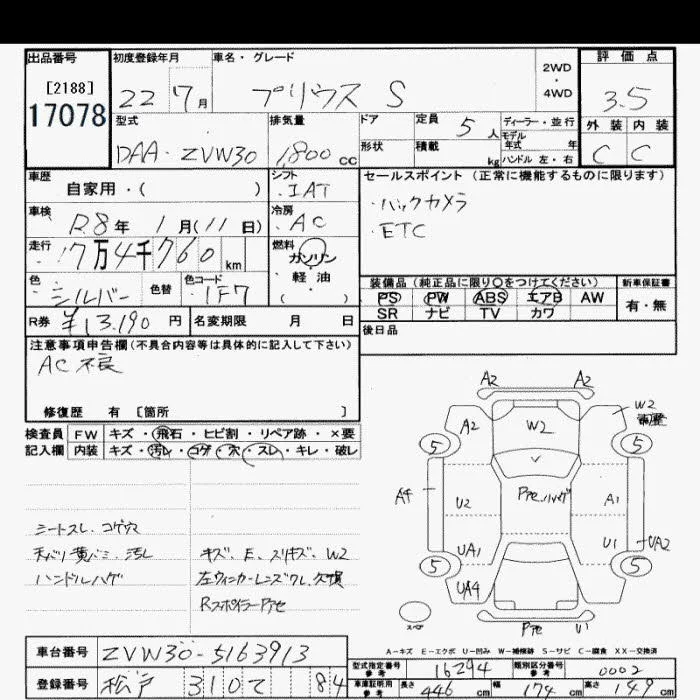 出品番号
[2188]
17078
初度登録年月
22 7月
車名・グレード
プリウス S
2WD
・
4WD
評価点
3.5
外装 内装
C C
型式
DAA・ZVW30
排気量
1,800 cc
ドア
形状
定員 5人
積載 kg
ディーラー・並行
モデル年式 年
ハンドル 左・右
車歴
自家用・( )
シフト
・IAT
セールスポイント (正常に機能するものに限ります)
・バックカメラ
・ETC
車検
R8年 1月(11日)
冷房
・AC
走行
17万4千760 km
燃料
ガソリン
・
軽油
( ・ )
色
・シルバー
色替
色コード
・1F7
装備品 (純正品に限り○をつけてください)
PS PW ABS エアB AW
SR ナビ TV カワ
新車保証書
有・無
R券 ¥13,190 円
名変期限 月 日
後日品
注意事項申告欄(不具合内容等は具体的に記入して下さい)
AC不良
修復歴 有 [箇所 ]
検査員記入欄
FW キズ・飛石・ヒビ割・リペア跡・×要
内装 キズ・汚レ・コゲ・穴・スレ・キレ・破レ
シートスレ、コゲ穴
天バリ黄バミ、汚レ
ハンドルハゲ
キズ、E、スリキズ、W2
左ウィンカーレンズワレ、欠損
Rスポイラー Pアセ
A2 A2
A2 W2 W2
5 5
A4 U2 Pアセ、ハゲ A1
UA1 U1 UA2
5 5
UA4
スペア
Pアセ U1
A-キズ E-エクボ U-凹み W-補修跡 S-サビ C-腐食 XX-交換済
車台番号 ZVW30-5163913
登録番号 松戸 310 て 84
型式指定番号 参考 16294
類別区分番号 参考 0002
車庫証明用 参考 長さ 446 cm 幅 174 cm 高さ 149 cm